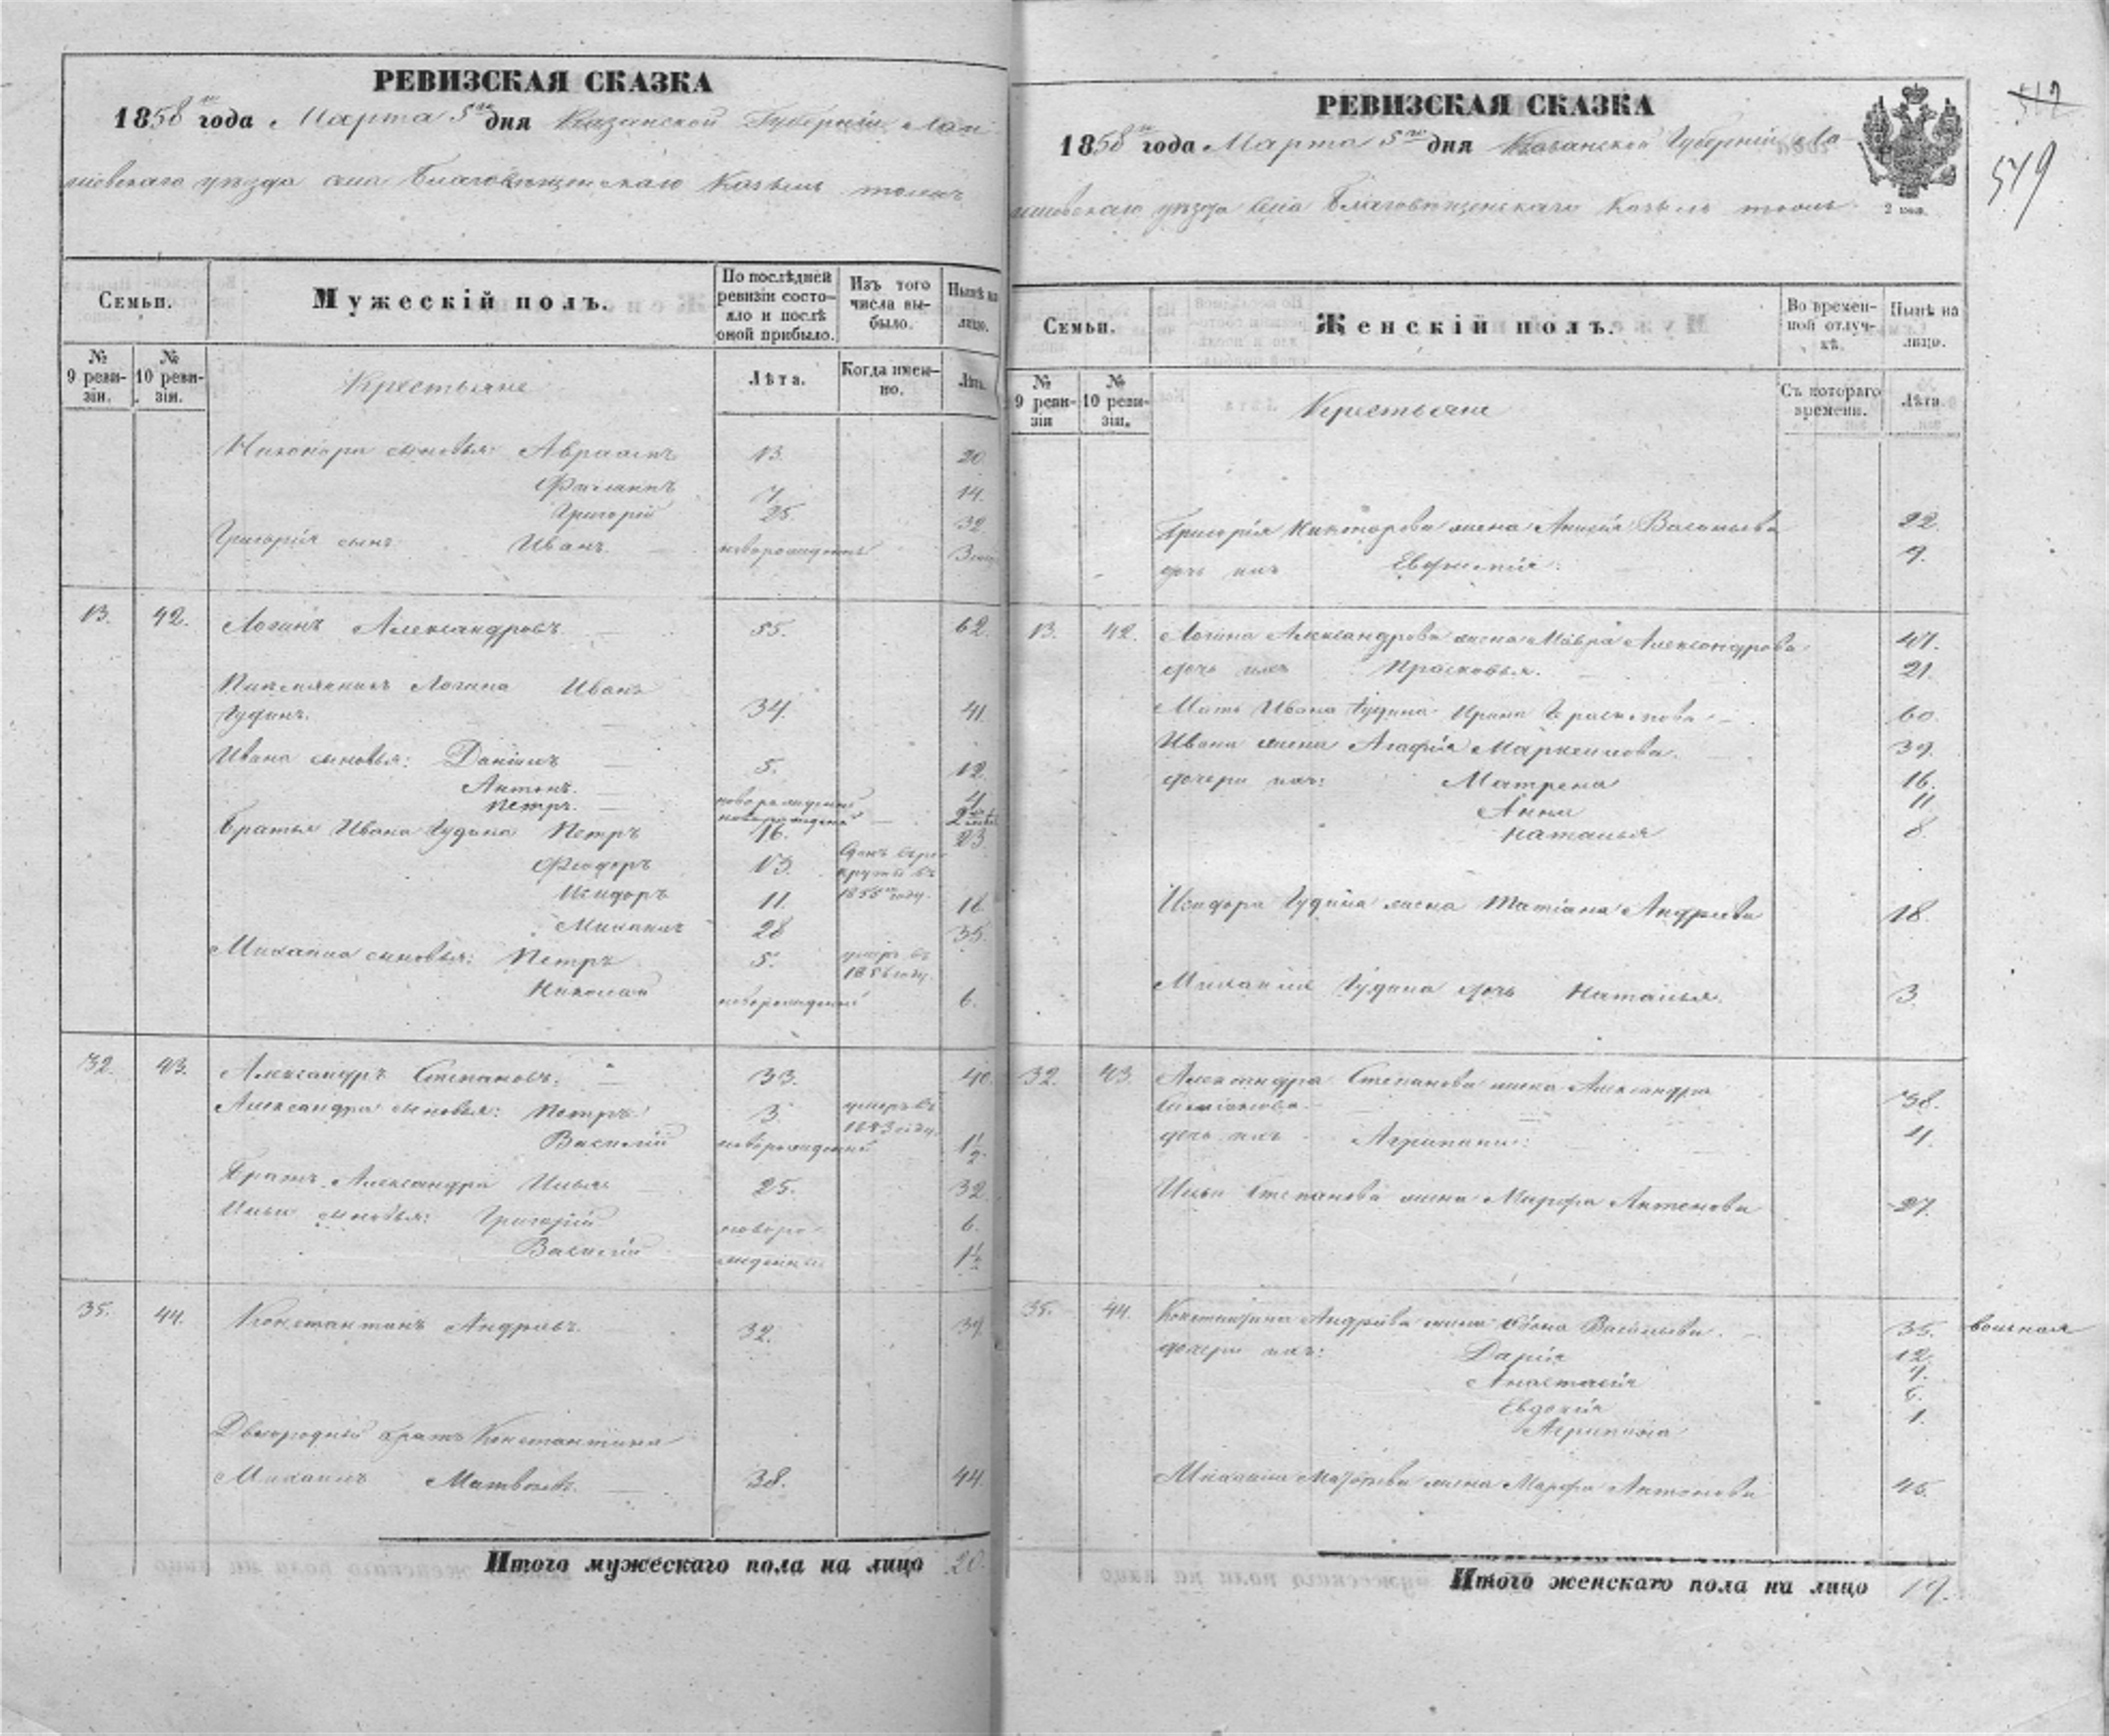 РЕВИЗСКАЯ СКАЗКА
1858 го года Марта 5 го дня Казанской Губерніи Лаи-
шевскаго уѣзда села Благовѣщенскаго
Семьи.
Мужескій полъ.
По послѣдней ревизіи состо-
яло и послѣ оной прибыло.
Изъ того числа вы-
было.
Нынѣ на лицо.
№ 9 реви-
зіи.
№ 10 реви-
зіи.
Крестьяне
Лѣта.
Когда имен-
но.
Лѣта.
Никонора сыновья: Авраамъ 13. 20.
7. 14.
Григорій 25. 32.
Григорія сынъ Иванъ новорожденъ
13. 42. Логинъ Александровъ 55. 62.
Племянникъ Логина Иванъ
34. 41.
Ивана сыновья: Даніилъ 5. 12.
Антонъ новорожденный 4
Петръ новорожденный
Братья Ивана Гудина Петръ 16. 23.
Феодоръ 13.
1855 году.
Исидоръ 11. 18.
Михаилъ 28 35.
Михаила сыновья: Петръ 5. умеръ въ
1856 году.
Николай новорожденный 6.
32. 43. Александръ Степановъ. 33. 40.
Александра сыновья: Петръ 3. умеръ въ
Василій новорожденный 1½
Братъ Александра Илья 25. 32.
Ильи сыновья: Григорій новоро- 6.
Василій жденные 1½
35. 44. Константинъ Андреевъ. 32. 39.
Двоюродный братъ Константина
Михаилъ Матвеевъ. 38. 44.
Итого мужескаго пола на лицо 20.
РЕВИЗСКАЯ СКАЗКА
1858 го года Марта 5 го дня Казанской Губерніи Ла-
ишевскаго уѣзда села Благовѣщенскаго
2 коп.
517
519
Семьи.
Женскій полъ.
Во времен-
ной отлуч-
кѣ.
Нынѣ на лицо.
№ 9 реви-
зіи
№ 10 реви-
зіи.
Крестьяне
Съ котораго времени.
Лѣта.
Григорія Никонорова жена Анисія Васильева 22.
дочь ихъ
13. 42. Логина Александрова жена Мавра Александрова 47.
дочь ихъ Прасковья. 21.
Мать Ивана Гудина Ирина 60.
Ивана жена Агафія Маркеллова. 39.
дочери ихъ: Матрена 16.
Анна 11
Наталья 8.
Исидора Гудина жена Татіана Андреева 18.
Михаила Гудина дочь Наталья. 3.
32. 43. Александра Степанова жена Александра
38.
дочь ихъ Агрипина: 4.
Ильи Степанова жена Марфа Антонова 27.
35. 44. Константина Андреева жена Васильева. 35. вольная
дочери ихъ: Дарія 12.
Анастасія
Евдокія 6.
Агрипина 1.
Михаила Матвеева жена Марфа Антонова 45.
Итого женскаго пола на лицо 19.